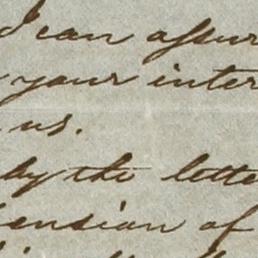 I can assur
your inter
us.
by the lette
ension of